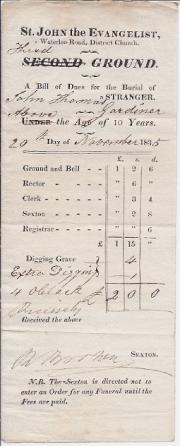 St. JOHN THE EVANGELIST,
Waterloo-Road, District Church.
Third
SECOND GROUND.
A Bill of Dues for the Burial of
John Thomas a STRANGER.
Above Gardiner
UNDER the Age of 10 Years.
20 Day of November 1835
£ s. d.
Ground and Bell - - 1 2 6
Rector - - - - " 6 "
Clerk - - - - - " 3 4
Sexton - - - - " 2 8
Registrar - - - - " " 6
£ 1 15 "
Digging Grave 4
Extra Digging 1
4 OClock £ 2 0 0
Precisely
Received the above
SEXTON.
N.B. The Sexton is directed not to
enter an Order for any Funeral until the
Fees are paid.